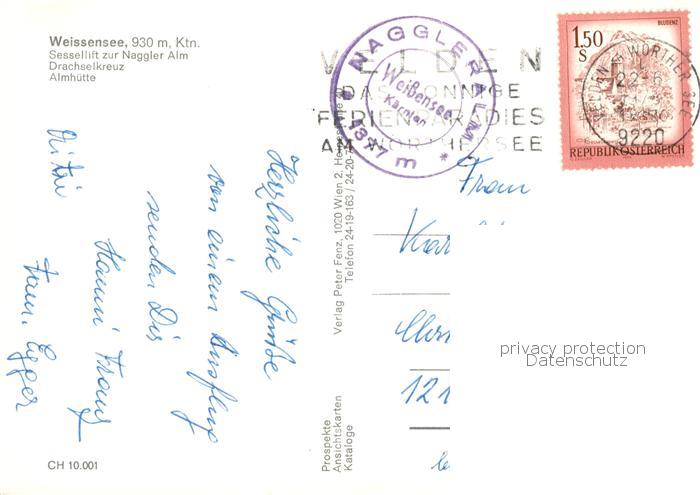 Weissensee, 930 m, Ktn.
Sessellift zur Naggler Alm
Drachselkreuz
Almhütte
Herzliche Grüße
von einem Ausflug
senden Dir
Hanni Franz
Fam. Egger
CH 10.001
Prospekte
Ansichtskarten
Kataloge
Verlag Peter Fenz, 1020 Wien 2,
Telefon 24-19-163 / 24-20-
NAGGLER ALM
Weißensee
Kärnten
VELDEN
DAS SONNIGE
FERIENPARADIES
AM WÖRTHERSEE
BLUDENZ
1.50
S
REPUBLIK ÖSTERREICH
9220
Frau
Kar
121
privacy protection
Datenschutz